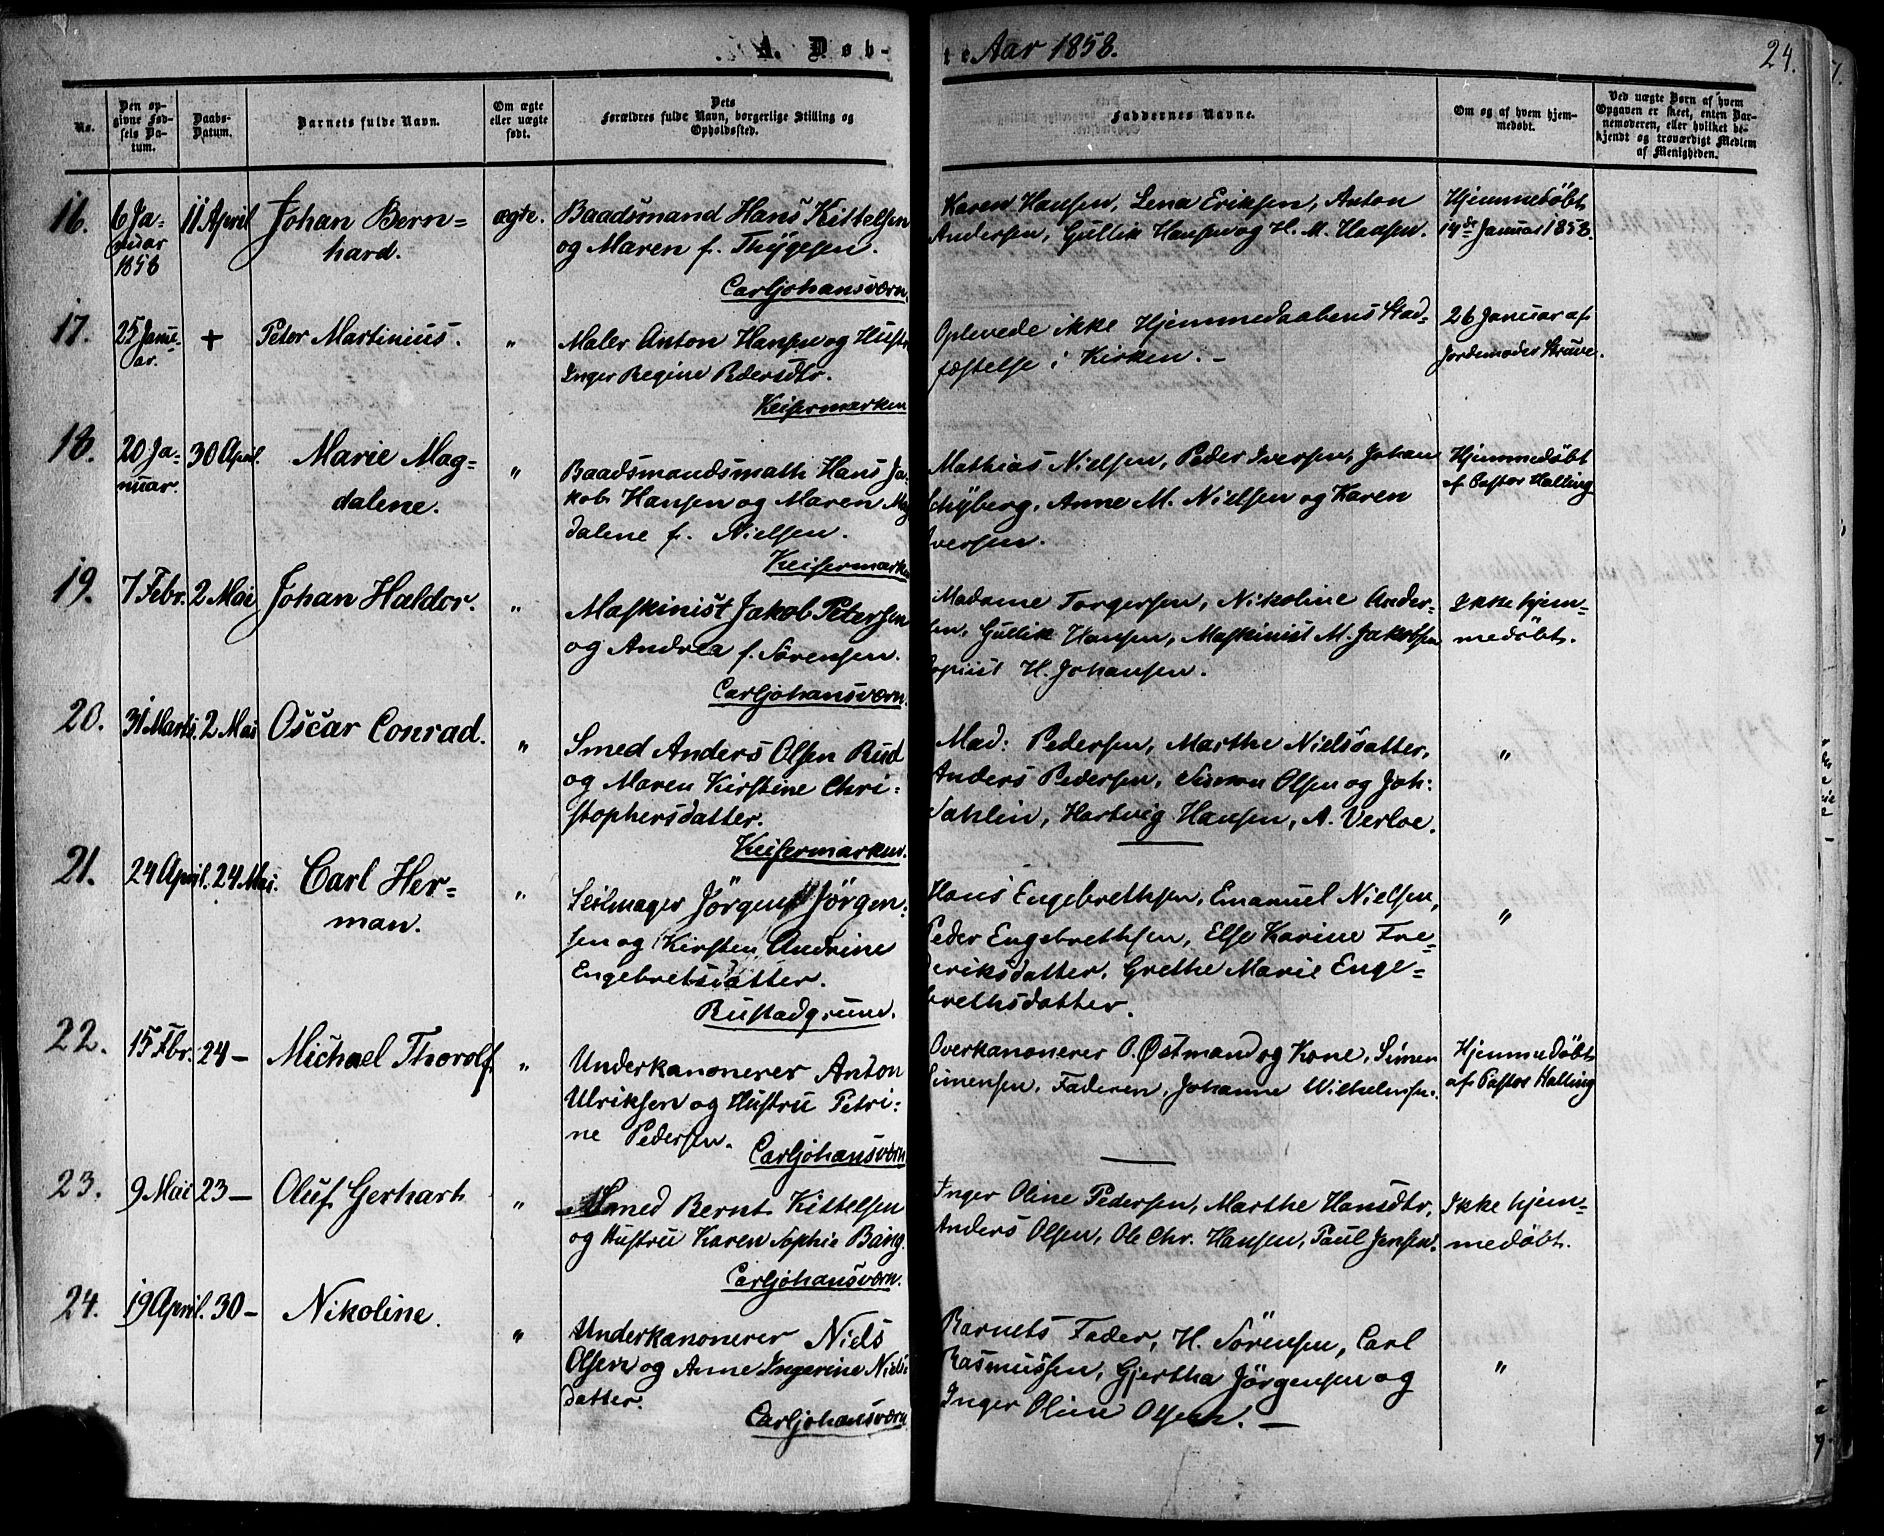 A. Døb-
te Aar 1858.
24.
No.
Den op-
givne Fød-
sels Da-
tum.
Daabs-
Datum.
Barnets fulde Navn.
Om ægte
eller uægte
født.
Dets
Forældres fulde Navn, borgerlige Stilling og
Opholdssted.
Faddernes Navne.
Om og af hvem hjem-
medøbt.
Ved uægte Børn af hvem
Opgaven er skeet, enten Bar-
nemoderen, eller hvilket be-
kjendt og troværdigt Medlem
af Menigheden.
16.
6 Ja-
nuar
1858
11 April
Johan Bern=
hard.
ægte.
Baadsmand Hans Kittelsen
og Maren f. Thygesen.
Carljohansværn.
Karen Hansen, Lena Eriksen, Anton
Andersen, Gullik Hansen og H. M. Hansen.
Hjemmedøbt
14de Januar 1858.
17.
25 Janu-
ar.
+
Peter Martinius.
"
Maler Anton Hansen og Hustr
Inger Regine Pedersdtr.
Keisermarken
Oplevede ikke Hjemmedaabens Stad-
fæstelse i Kirken. -
26 Januar af
Jordemoder Struve.
18.
20 Ja-
nuar.
30 April.
Marie Mag=
dalene.
"
Baadsmandsmath Hans Ja-
kob Hansen og Maren Mag
dalene f. Nielsen.
Keisermarken
Mathias Nielsen, Peder Iversen, Johan
Schyberg, Anne M. Nielsen og Karen
Iversen.
Hjemmedøbt
af Pastor Halling
19.
7 Febr.
2 Mai
Johan Haldor.
"
Maskinist Jakob Petersen
og Andrea f. Sørensen.
Carljohansværn.
Madame Torgersen, Nikoline Ander-
sen, Gullik Hansen, Maskinist M. Jakobsen
Copiist H. Johansen.
Ikke hjem=
medøbt.
20.
31 Marts.
2 Mai
Oscar Conrad.
"
Smed Anders Olsen Rud
og Maren Kirstine Chri=
stophersdatter.
Keisermarken.
Mad: Pedersen, Marthe Nielsdatter,
Anders Pedersen, Simon Olsen og Joh:
Dahlin, Hartvig Hansen, A. Verloe.
"
21.
24 April.
24 Mai.
Carl Her=
man.
"
Seilmager Jörgen Jörgen=
sen og Kirsten Andrine
Engebretsdatter.
Rustadgrund.
Hans Engebrethsen, Emanuel Nielsen,
Peder Engebrethsen, Else Karine Fre=
deriksdatter, Grethe Marie Enge=
brethsdatter.
"
22.
15 Fbr.
24 -
Michael Thorolf.
"
Underkanonerer Anton
Ulriksen og Hustru Petri=
ne Pedersen.
Carljohansværn
Overkanonerer O. Østmand og Kone, Simen
Simensen, Faderen, Johanne Wilhelmsen.
Hjemmedøbt
af Pastor Halling
23.
9 Mai
23 -
Oluf Gerhart
"
Smed Bernt Kittelsen
og Hustru Karen Sophie Bang.
Carljohansværn.
Inger Oline Pedersen, Marthe Hansdtr,
Anders Olsen, Ole Chr. Hansen, Paul Jensen.
Ikke hjem=
medøbt.
24.
19 April.
30 -
Nikoline.
"
Underkanonerer Niels
Olsen og Anne Ingerine Niels
datter.
Carljohansværn
Barnets Fader, H. Sörensen, Carl
Rasmussen, Gjertha Jörgensen og
Inger Oline Olsen. -
"